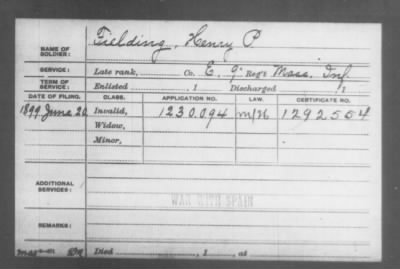 NAME OF SOLDIER: Fielding, Henry P.
SERVICE: Late rank, Co. E, 9" Reg't Mass. Inf.
TERM OF SERVICE: Enlisted , 1 Discharged , 1
DATE OF FILING. CLASS. APPLICATION NO. LAW. CERTIFICATE NO.
1899 June 20 Invalid, 1230.094 1292554
Widow,
Minor,
ADDITIONAL SERVICES:
WAR WITH SPAIN
REMARKS:
Died , 1 , at